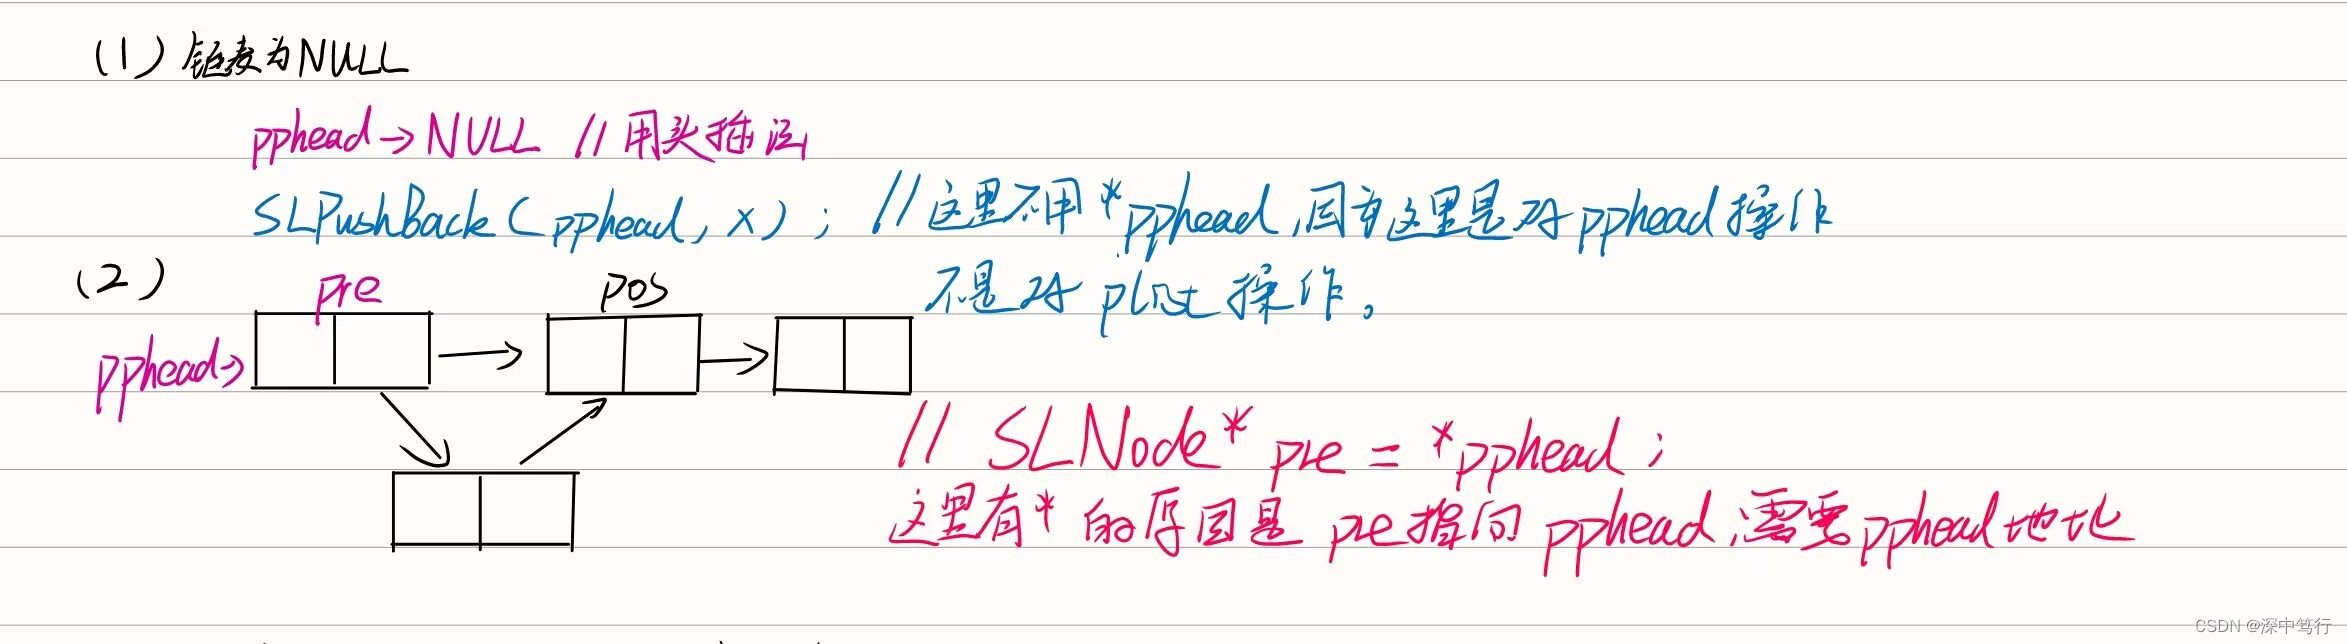 (1) 链表为NULL
pphead→NULL //用头插法
SLPushBack(pphead, x); //这里不用*pphead,因为这里是对pphead操作
不是对plist操作。
(2)
pre
pos
pphead→
// SLNode* pre = *pphead;
这里有*的原因是 pre指向 pphead,需要pphead地址
CSDN @深中笃行